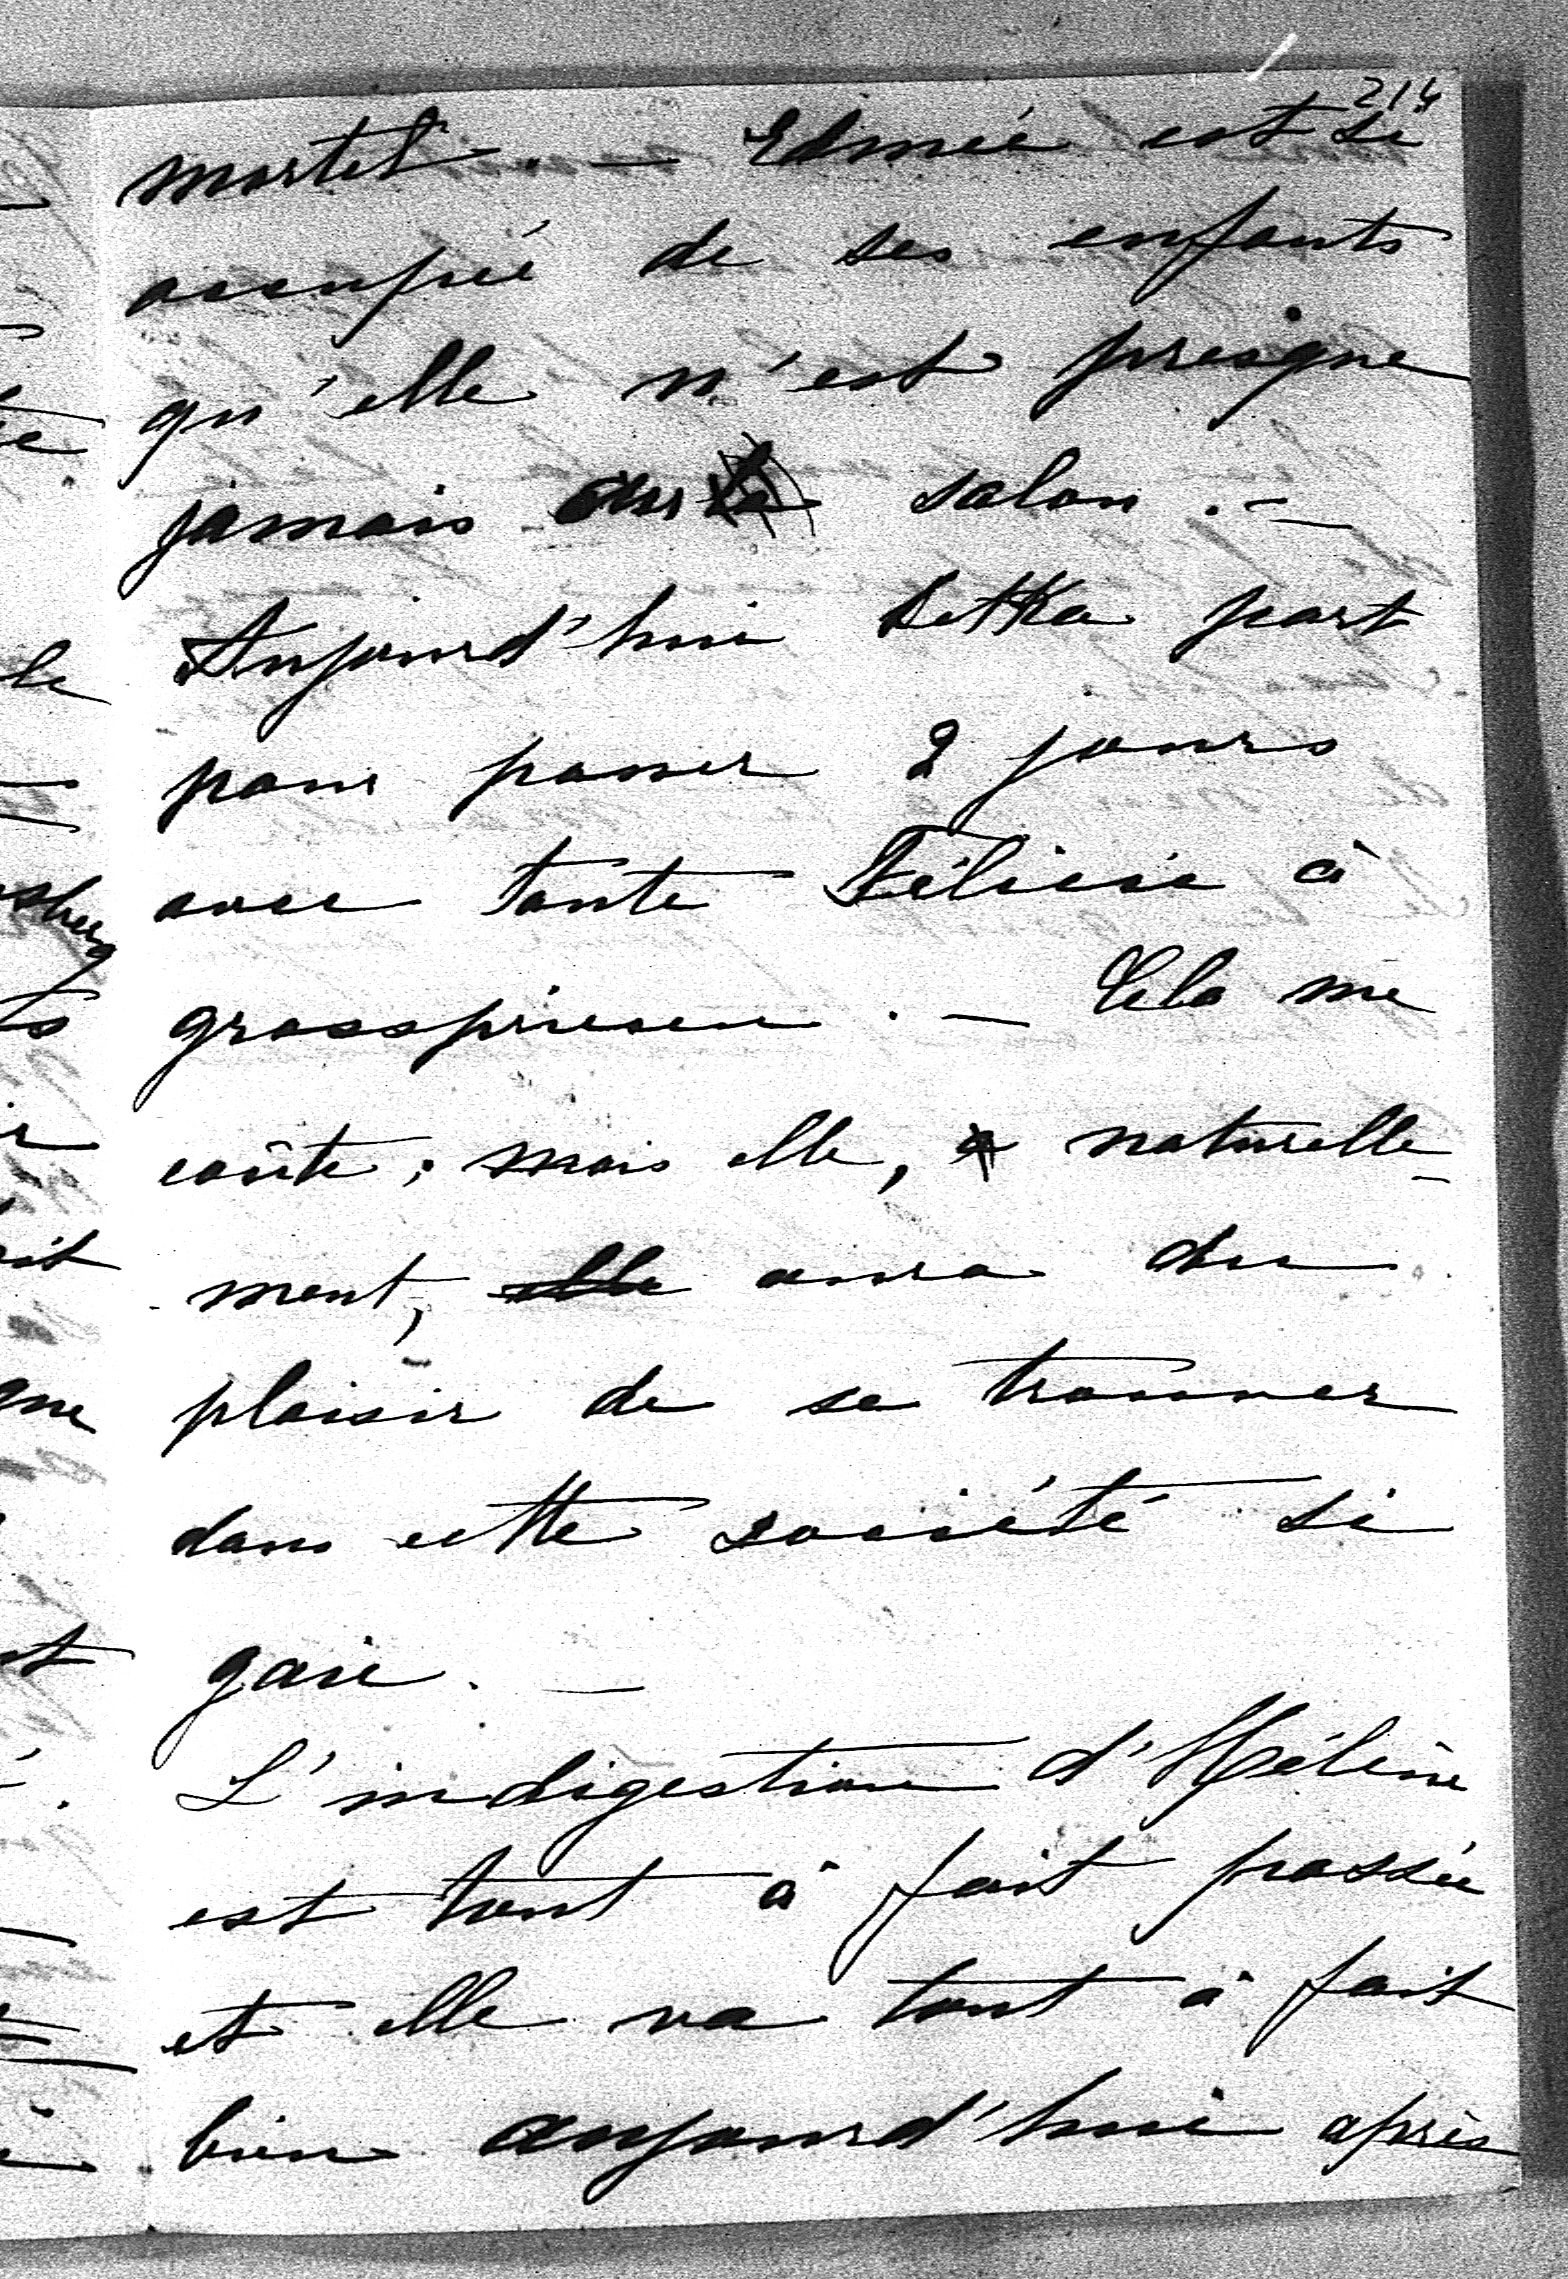 214
mortel. — Edmée est si
occupée de ses enfants
qu'elle n'est presque
jamais au salon. —
Aujourd'hui Detka part
pour passer 2 jours
avec tante Félicie à
grosspriesen. — Cela me
coûte; mais elle, naturelle-
ment, elle aura du
plaisir de se trouver
dans cette société si
gaie. —
L'indigestion d'Hélène
est tout à fait passée
et elle va tout à fait
bien aujourd'hui après